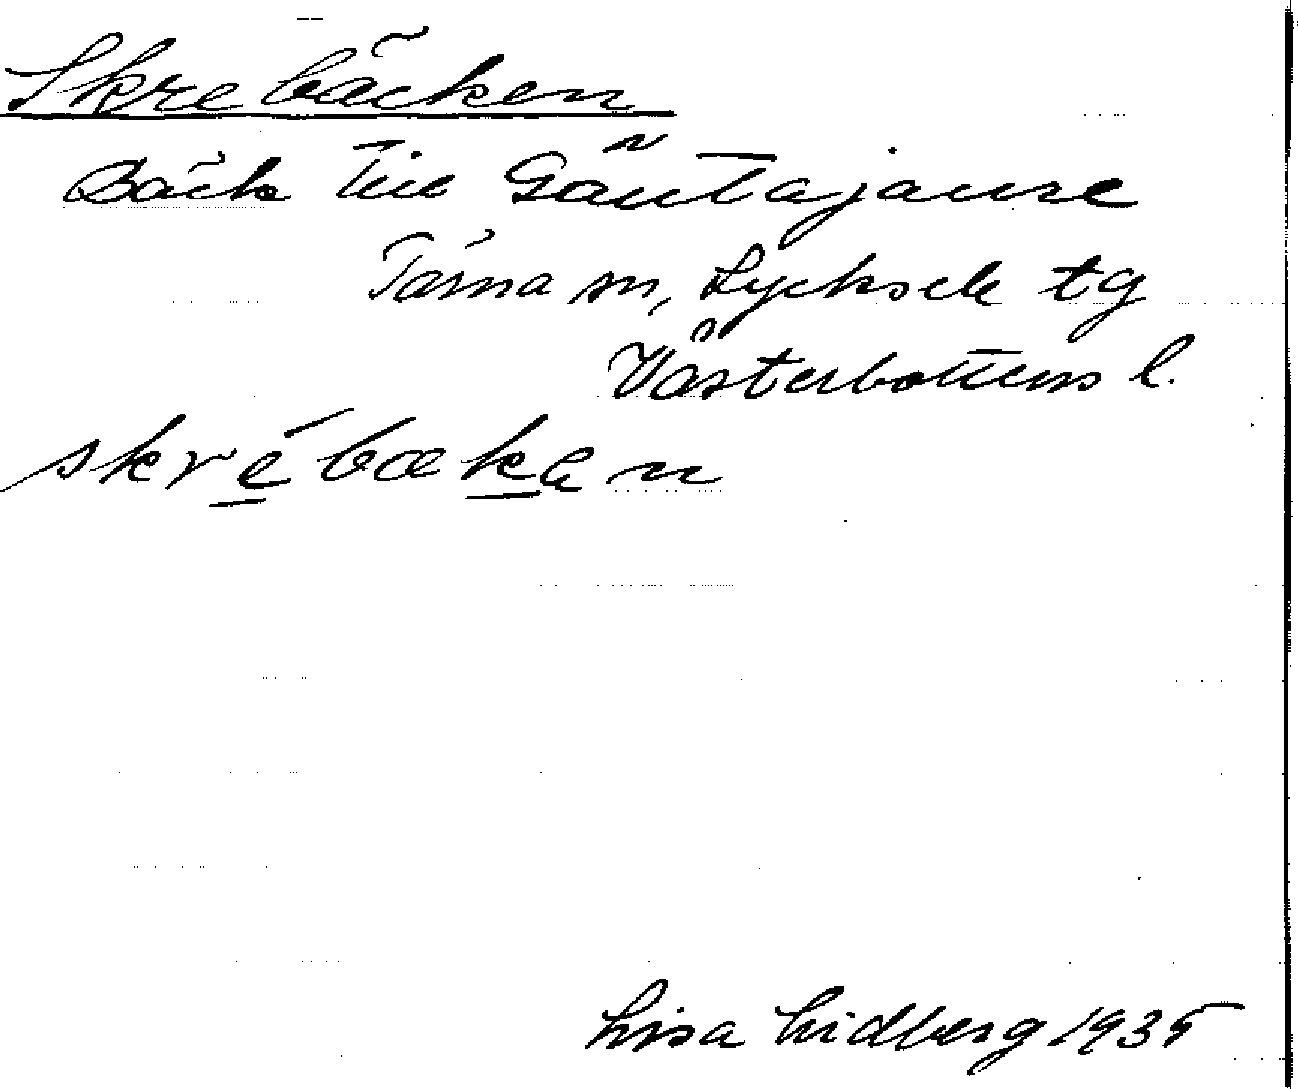 Skrebäcken
Bäck till Gäutajaure
Tärna sn, Lycksele tg
Västerbottens l.
skré̱bæḵən
Lisa Lidberg 1935